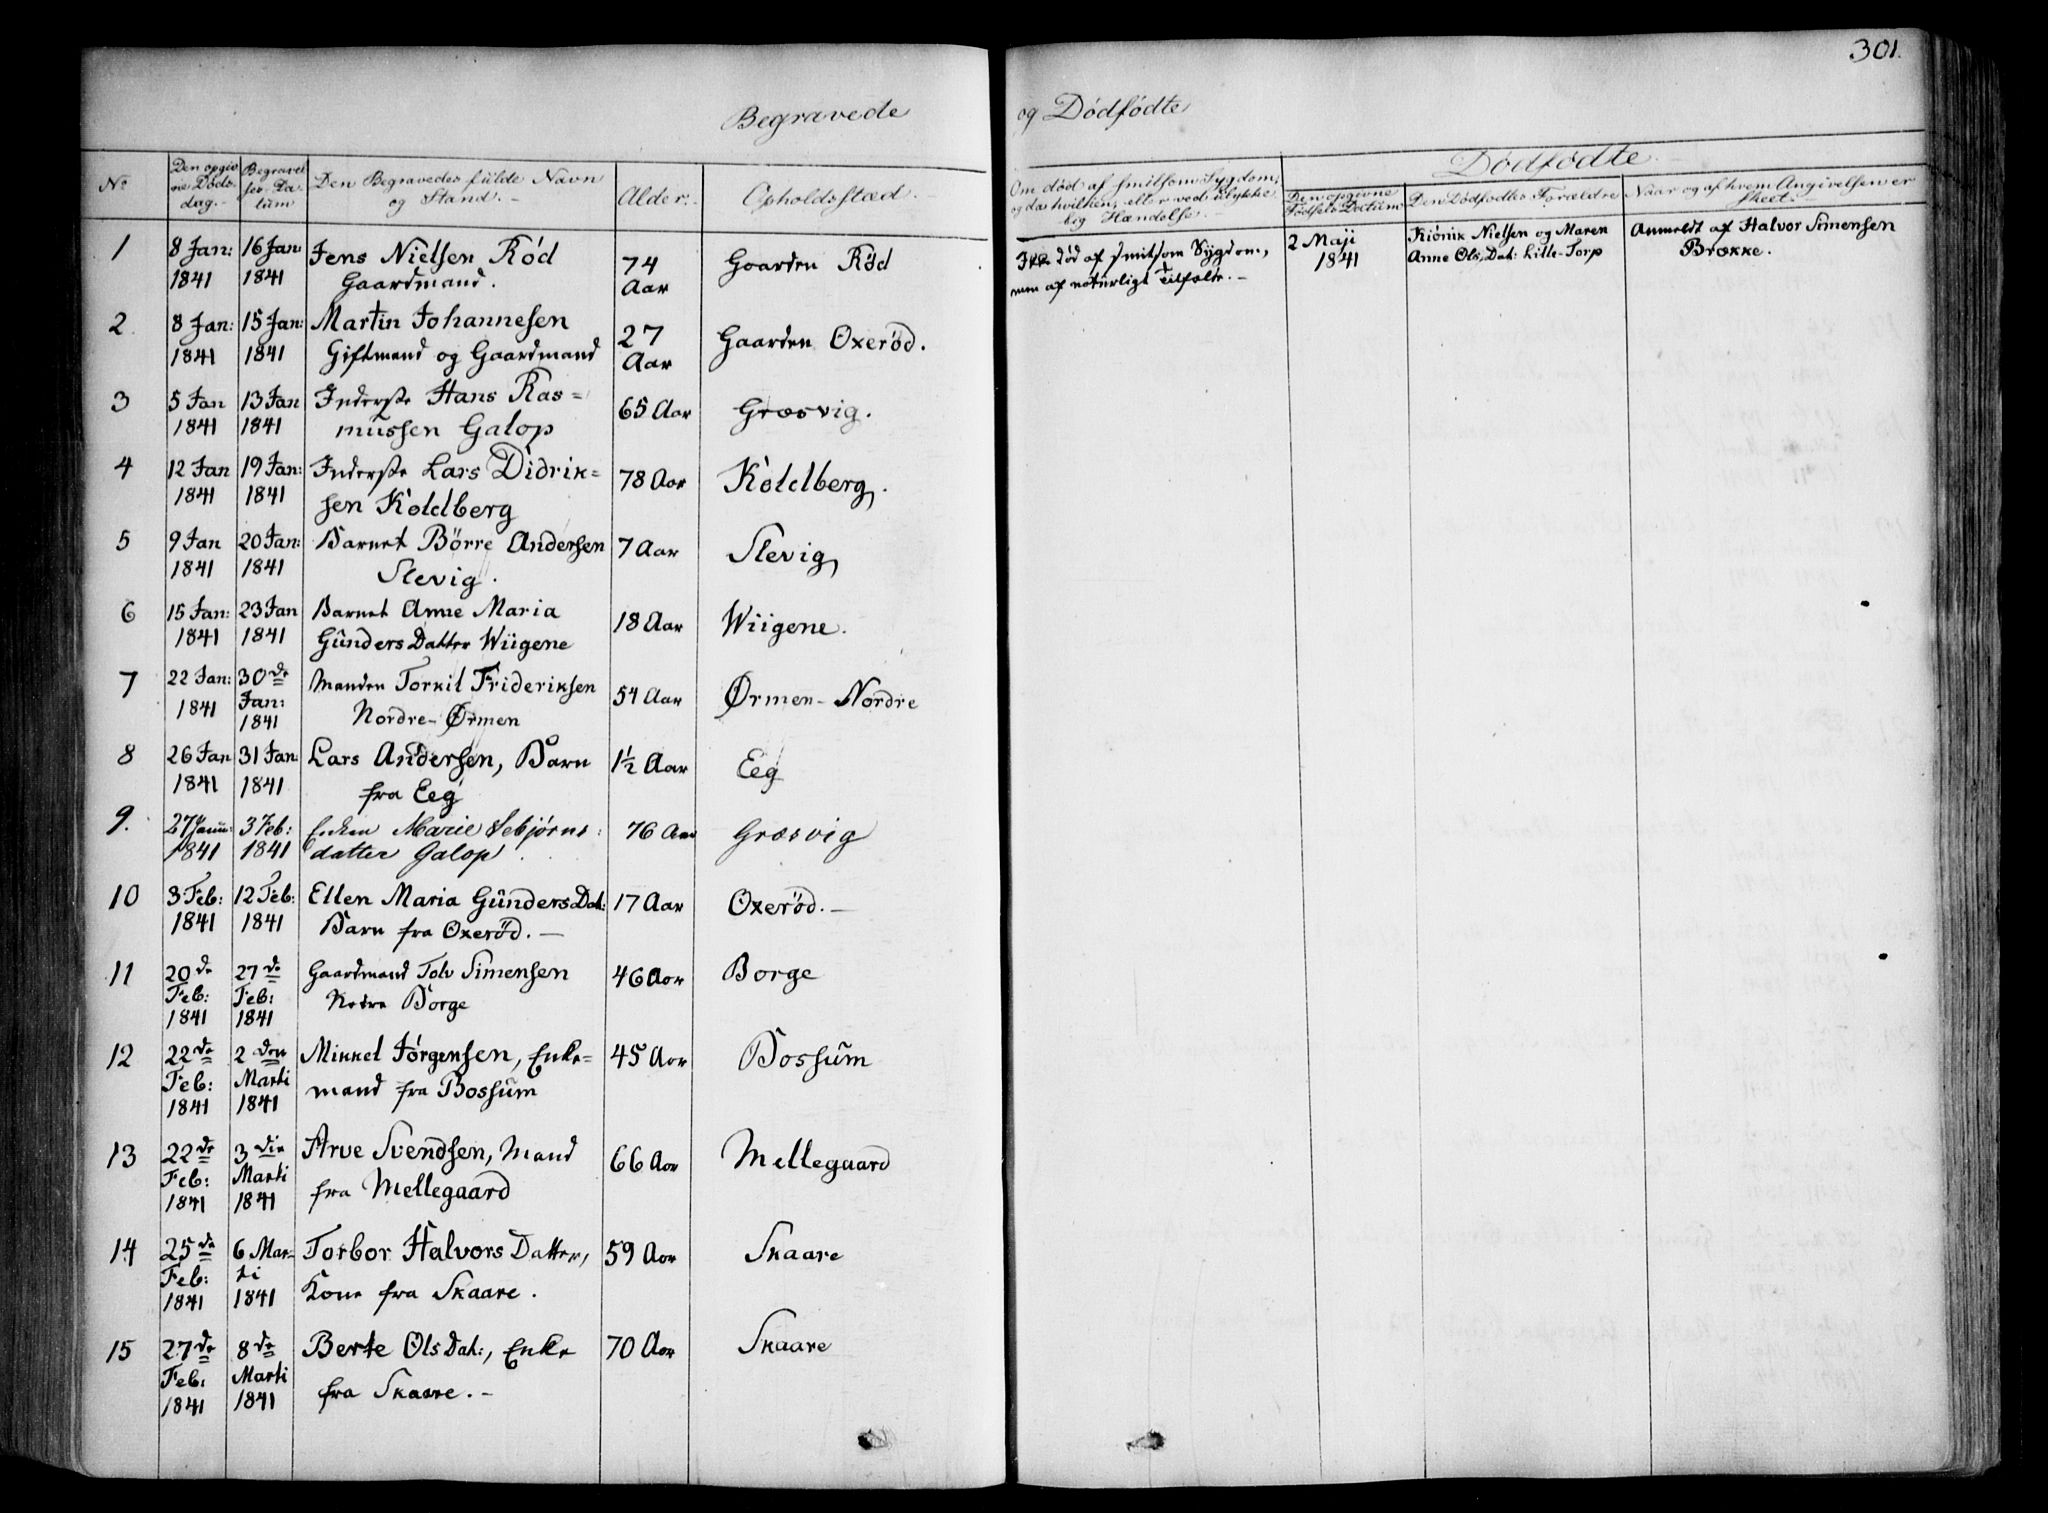 301.
Begravede
og Dödfödte
No
Den opgivne Döds dag.
Begravelses-Datum
Den Begravedes fulde Navn og Stand.
Alder.
Opholdsstæd.
Om död af smitsom Sygdom, og da hvilken, eller ved ulykkelig Hændelse.
Dödfödte.
Den opgivne Födsels Datum
Den Dödfödtes Forældre
Naar og af hvem Angivelsen er skeet.
1
8 Jan: 1841
16 Jan: 1841
Jens Nielsen Röd
Gaardmand.
74 Aar
Gaarden Röd
Ikke död af smitsom Sygdom,
men af naturligt Tilfælde.
2 Maji
1841
Nielsen og Maren
Anne Ols Dat: Lille-Torp
Anmeldt af Halvor Simensen
Brække.
2.
8 Jan: 1841
15 Jan: 1841
Martin Johannesen
Giftmand og Gaardmand
27 Aar
Gaarden Oxeröd.
3
5 Jan 1841
13 Jan 1841
Inderste Hans Ras=
mussen Galop
65 Aar
Græsvig.
4
12 Jan 1841
19 Jan: 1841
Inderste Lars Didrik=
sen Koldberg
78 Aar
Koldberg.
5
9 Jan 1841
20 Jan: 1841
Barnet Börre Andersen
Slevig.
7 Aar
Slevig
6
15 Jan: 1841
23 Jan 1841
Barnet Anne Maria
Gunders Datter Wiigene
18 Aar
Wiigene.
7
22 Jan: 1841
30de Jan: 1841
Manden Torkil Frideriksen
Nordre-Ørmen
54 Aar
Ørmen-Nordre
8
26 Jan 1841
31 Jan: 1841
Lars Andersen, Barn
fra Eeg
1½ Aar
Eeg
9.
27 Janu: 1841
3 Feb: 1841
Enken Marie Sebjørns
datter Galop
76 Aar
Græsvig
10
3 Feb: 1841
12 Feb: 1841
Ellen Maria Gunders Dat:
Barn fra Oxeröd.—
17 Aar
Oxeröd.—
11
20de Feb: 1841
27de Feb: 1841
Gaardmand Tolv Simensen
Nedre Borge
46 Aar
Borge
12
22de Feb: 1841
2den Marti 1841
Mikkel Jørgensen, Enke=
mand fra Bossum
45 Aar
Bossum
13
22de Feb: 1841
3die Marti 1841
Arve Svendsen, Mand
fra Mellegaard
66 Aar
Mellegaard
14
25de Feb: 1841
6 Marti 1841
Torbor Halvors Datter,
Kone fra Skaare.
59 Aar
Skaare
15
27de Feb: 1841
8de Marti 1841
Berte Ols Dat:, Enke
fra Skaare.—
70 Aar
Skaare